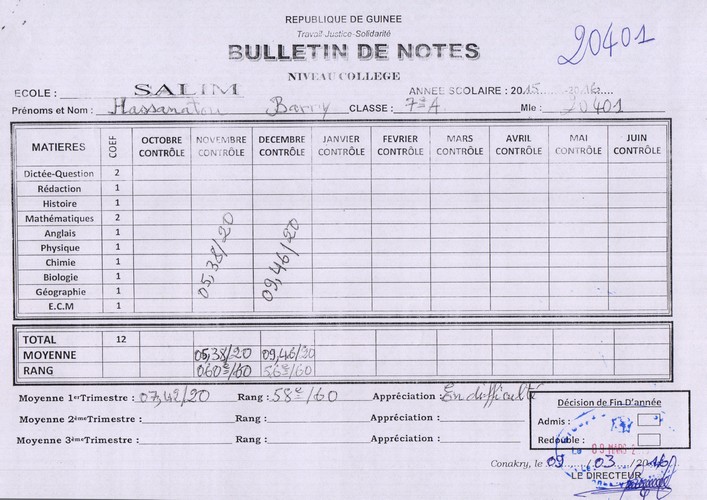 REPUBLIQUE DE GUINEE
Travail-Justice-Solidarité
BULLETIN DE NOTES
20401
NIVEAU COLLEGE
ECOLE : SALIM ANNEE SCOLAIRE : 2015 -2016
Prénoms et Nom : Hassanatou Barry CLASSE : 7e A Mle : 20401
MATIERES COEF OCTOBRE CONTRÔLE NOVEMBRE CONTRÔLE DECEMBRE CONTRÔLE JANVIER CONTRÔLE FEVRIER CONTRÔLE MARS CONTRÔLE AVRIL CONTRÔLE MAI CONTRÔLE JUIN CONTRÔLE
Dictée-Question 2
Rédaction 1
Histoire 1
Mathématiques 2
Anglais 1
Physique 1
Chimie 1
Biologie 1
Géographie 1
E.C.M 1
05,38/20 09,46/20
TOTAL 12
MOYENNE 05,38/20 09,46/20
RANG 060e/60 56e/60
Moyenne 1er Trimestre : 07,42/20 Rang : 58e/60 Appréciation : En difficulté
Moyenne 2ème Trimestre : Rang : Appréciation :
Moyenne 3ème Trimestre : Rang : Appréciation :
Décision de Fin D'année
Admis :
Redouble :
09 MARS 2
Conakry, le 09 / 03 / 2016
LE DIRECTEUR